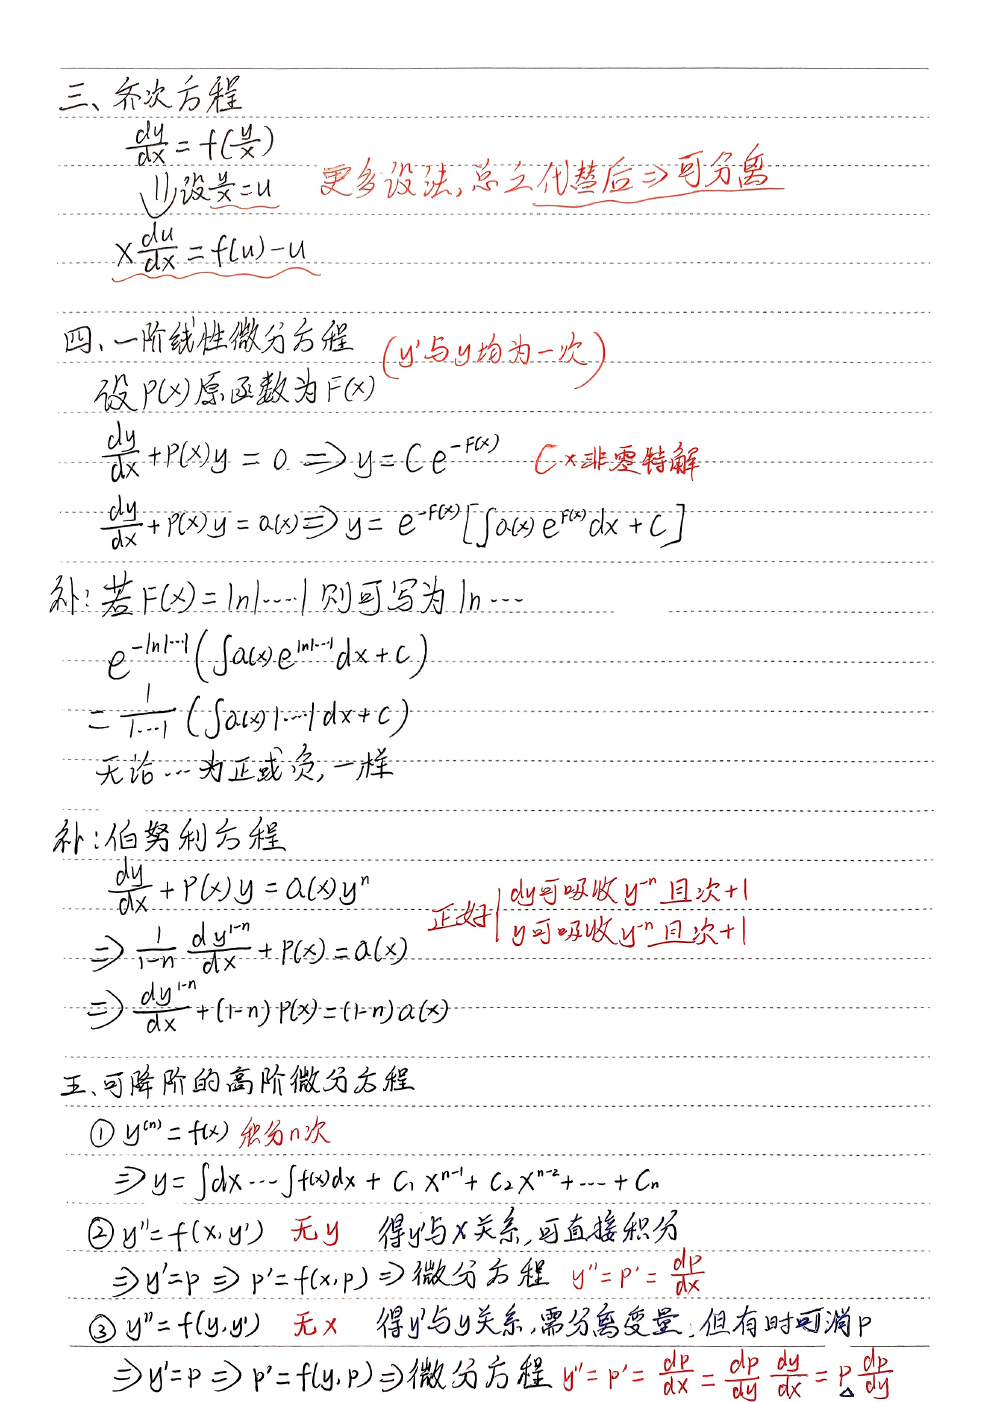 三、齐次方程
dy/dx = f(y/x)
⇓ 设 y/x = u 更多设法,总之代替后⇒可分离
x du/dx = f(u) - u
四、一阶线性微分方程 (y'与y均为一次)
设 P(x)原函数为F(x)
dy/dx + P(x)y = 0 ⇒ y = C e^{-F(x)} C×非零特解
dy/dx + P(x)y = a(x) ⇒ y = e^{-F(x)} [∫a(x) e^{F(x)} dx + C]
补:若 F(x) = ln|····| 则可写为 ln ···
e^{-ln|···|} (∫a(x) e^{ln|···|} dx + C)
= 1/|···| (∫a(x) |···| dx + C)
无论 ··· 为正或负,一样
补:伯努利方程
dy/dx + P(x) y = a(x) y^n
正好 | dy可吸收 y^{-n} 且次+1
y可吸收 y^{-n} 且次+1
⇒ 1/(1-n) dy^{1-n}/dx + P(x) = a(x)
⇒ dy^{1-n}/dx + (1-n) P(x) = (1-n) a(x)
五、可降阶的高阶微分方程
① y^{(n)} = f(x) 积分n次
⇒ y = ∫dx ··· ∫f(x)dx + C₁ x^{n-1} + C₂ x^{n-2} + ··· + Cₙ
② y'' = f(x, y') 无y 得y'与x关系,可直接积分
⇒ y' = p ⇒ p' = f(x, p) ⇒ 微分方程 y'' = p' = dp/dx
③ y'' = f(y, y') 无x 得y'与y关系,需分离变量,但有时可消p
⇒ y' = p ⇒ p' = f(y, p) ⇒ 微分方程 y'' = p' = dp/dx = dp/dy dy/dx = p dp/dy